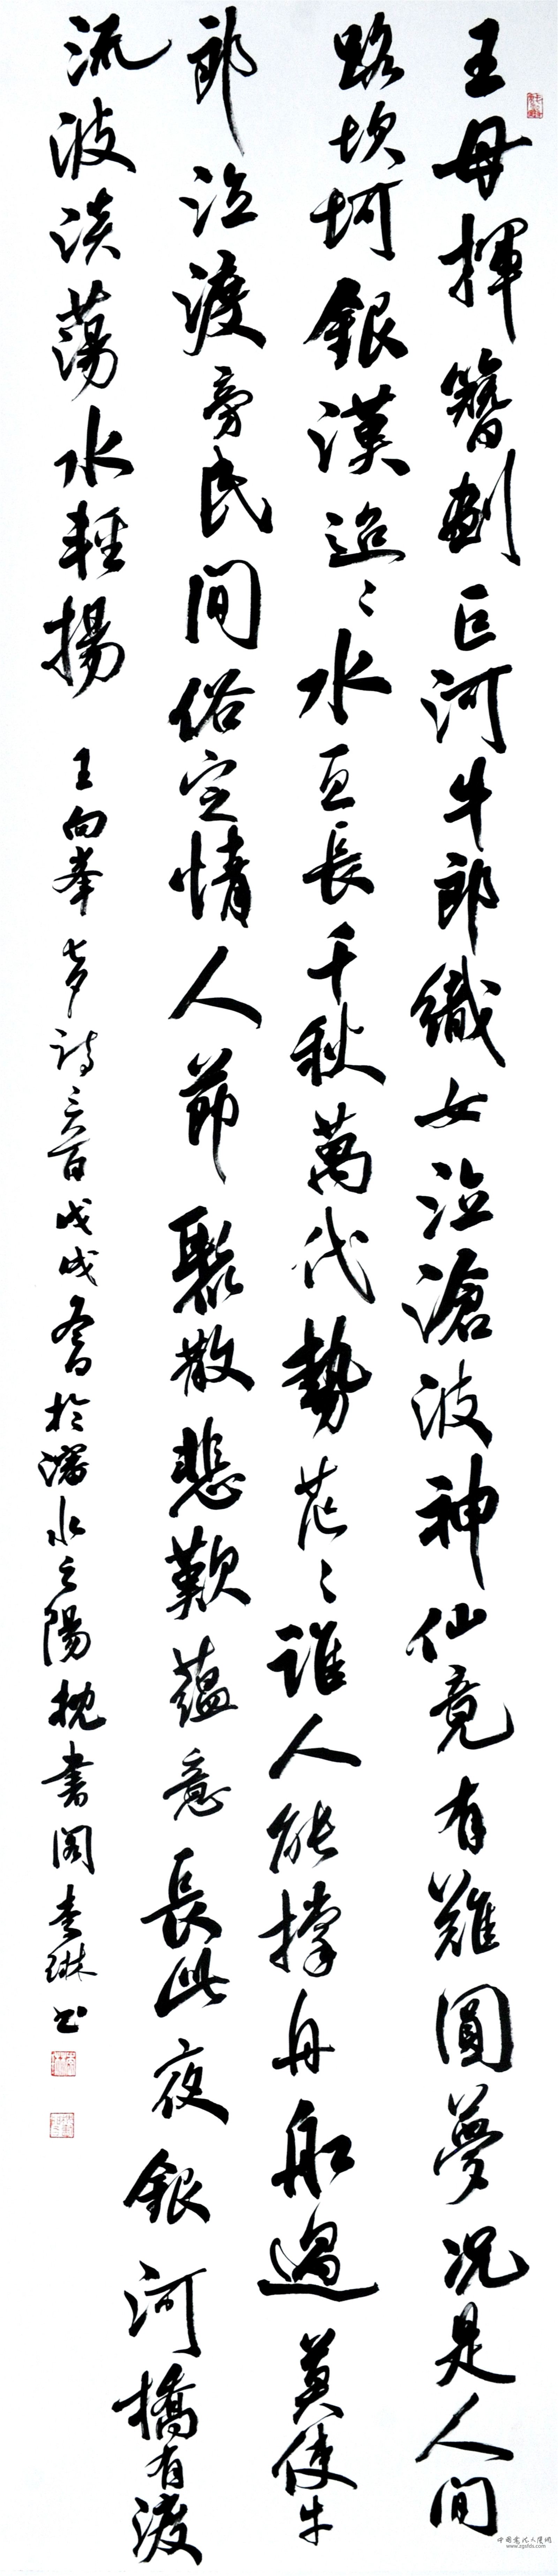 王母揮簪劃巨河牛郎織女泣滄波神仙竟有難圓夢況是人間
路坎坷銀漢迢々水亙長千秋萬代勢茫々誰人能撑舟船過莫使牛
郎泣渡旁民間俗定情人節聚散悲歡蘊意長此夜銀河橋有渡
流波淡蕩水輕揚
王向峯七夕詩三首戊戌春於瀋水之陽枕書閣李琳书
中国书法大厦网
www.zgsfds.com